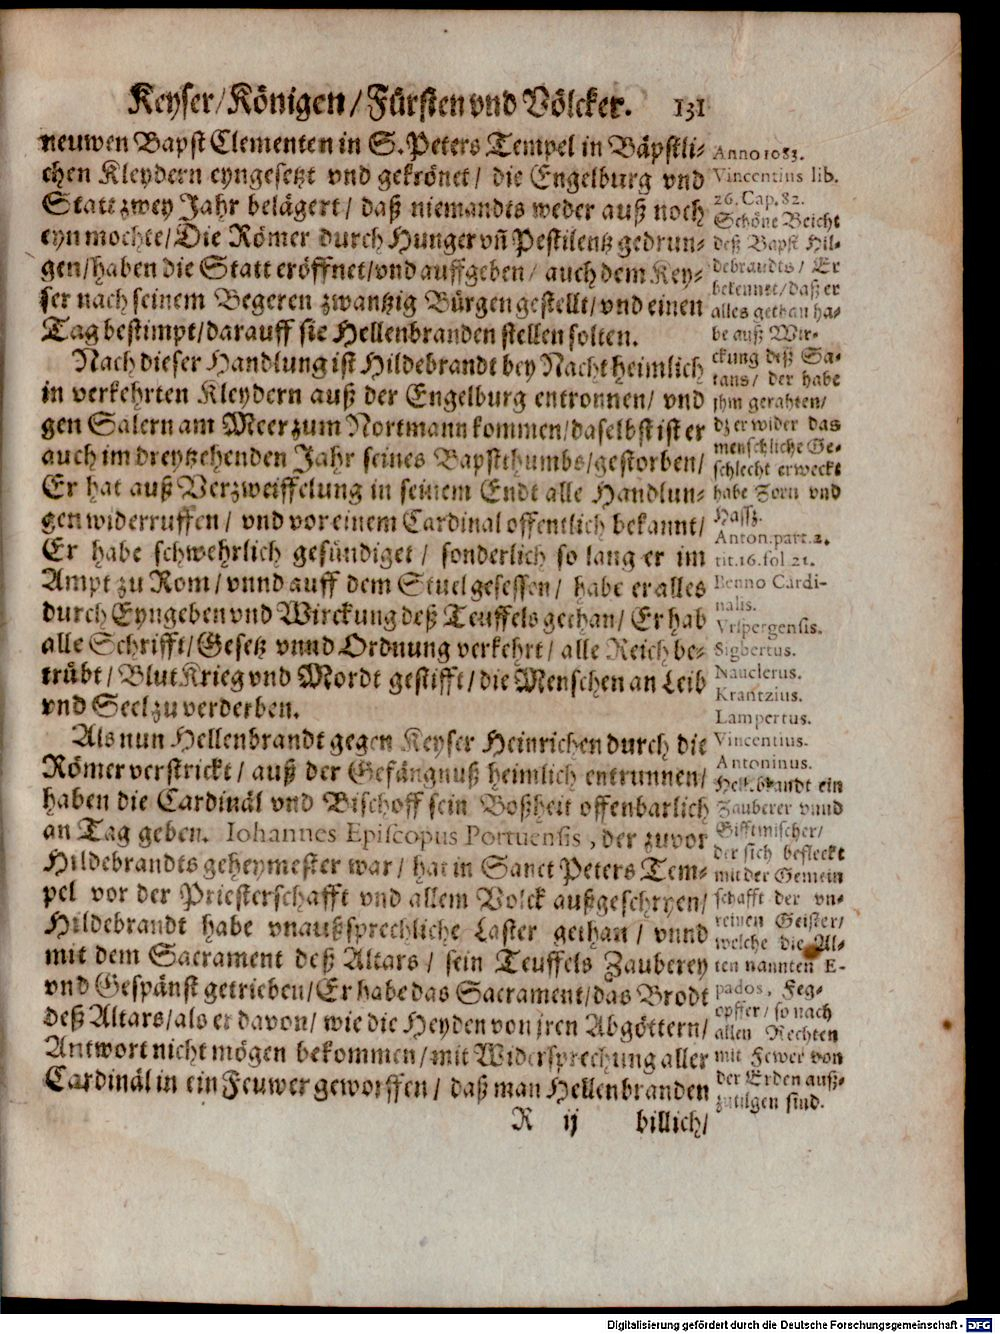 Keyser/Königen/Fürsten vnd Völcker. 131
neuwen Bapst Clementen in S. Peters Tempel in Bäpstli-
chen Kleydern eyngesetzt vnd gekrönet/ die Engelburg vnd
Statt zwey Jahr belägert/ daß niemandts weder auß noch
eyn mochte/ Die Römer durch Hunger vñ Pestilentz gedrun-
gen/ haben die Statt eröffnet/ vnd auffgeben/ auch dem Key-
ser nach seinem Begeren zwantzig Bürgen gestellt/ vnd einen
Tag bestimpt/ darauff sie Hellenbranden stellen solten.
Nach dieser Handlung ist Hildebrandt bey Nacht heimlich
in verkehrten Kleydern auß der Engelburg entronnen/ vnd
gen Salern am Meer zum Nortmann kommen/ daselbst ist er
auch im dreytzehenden Jahr seines Bapstthumbs/ gestorben/
Er hat auß Verzweiffelung in seinem Endt alle Handlun-
gen widerruffen/ vnd vor einem Cardinal offentlich bekannt/
Er habe schwehrlich gesündiget/ sonderlich so lang er im
Ampt zu Rom/ vnnd auff dem Stuel gesessen/ habe er alles
durch Eyngeben vnd Wirckung deß Teuffels gethan/ Er hab
alle Schrifft/ Gesetz vnnd Ordnung verkehrt/ alle Reich be-
trübt/ Blut Krieg vnd Mordt gestifft/ die Menschen an Leib
vnd Seel zu verderben.
Als nun Hellenbrandt gegen Keyser Heinrichen durch die
Römer verstrickt/ auß der Gefängnuß heimlich entrunnen/
haben die Cardinäl vnd Bischoff sein Boßheit offenbarlich
an Tag geben. Iohannes Episcopus Portuensis, der zuvor
Hildebrandts geheymester war/ hat in Sanct Peters Tem-
pel vor der Priesterschafft vnd allem Volck außgeschryen/
Hildebrandt habe vnaußsprechliche Laster gethan/ vnnd
mit dem Sacrament deß Altars/ sein Teuffels Zauberey
vnd Gespänst getrieben/ Er habe das Sacrament/ das Brodt
deß Altars/ als er davon/ wie die Heyden von jren Abgöttern/
Antwort nicht mögen bekommen/ mit Widersprechung aller
Cardinäl in ein Feuwer geworffen/ daß man Hellenbranden
R ij billich/
Anno 1083.
Vincentius lib.
26. Cap. 82.
Schöne Beicht
deß Bapst Hil-
debrandts/ Er
bekennet/ daß er
alles gethan ha-
be auß Wir-
ckung deß Sa-
tans/ der habe
jhm gerahten/
dz er wider das
menschliche Ge-
schlecht erweckt
habe Zorn vnd
Hassz.
Anton. part. 2.
tit. 16. fol 21.
Benno Cardi-
nalis.
Vrspergensis.
Sigbertus.
Nauclerus.
Krantzius.
Lampertus.
Vincentius.
Antoninus.
Hellebrandt ein
Zauberer vnnd
Gifftmischer/
der sich befleckt
mit der Gemein
schafft der vn-
reinen Geister/
welche die Al-
ten nannten E-
pados, Feg-
opffer/ so nach
allen Rechten
mit Fewer von
der Erden auß-
zutilgen sind.
Digitalisierung gefördert durch die Deutsche Forschungsgemeinschaft - DFG